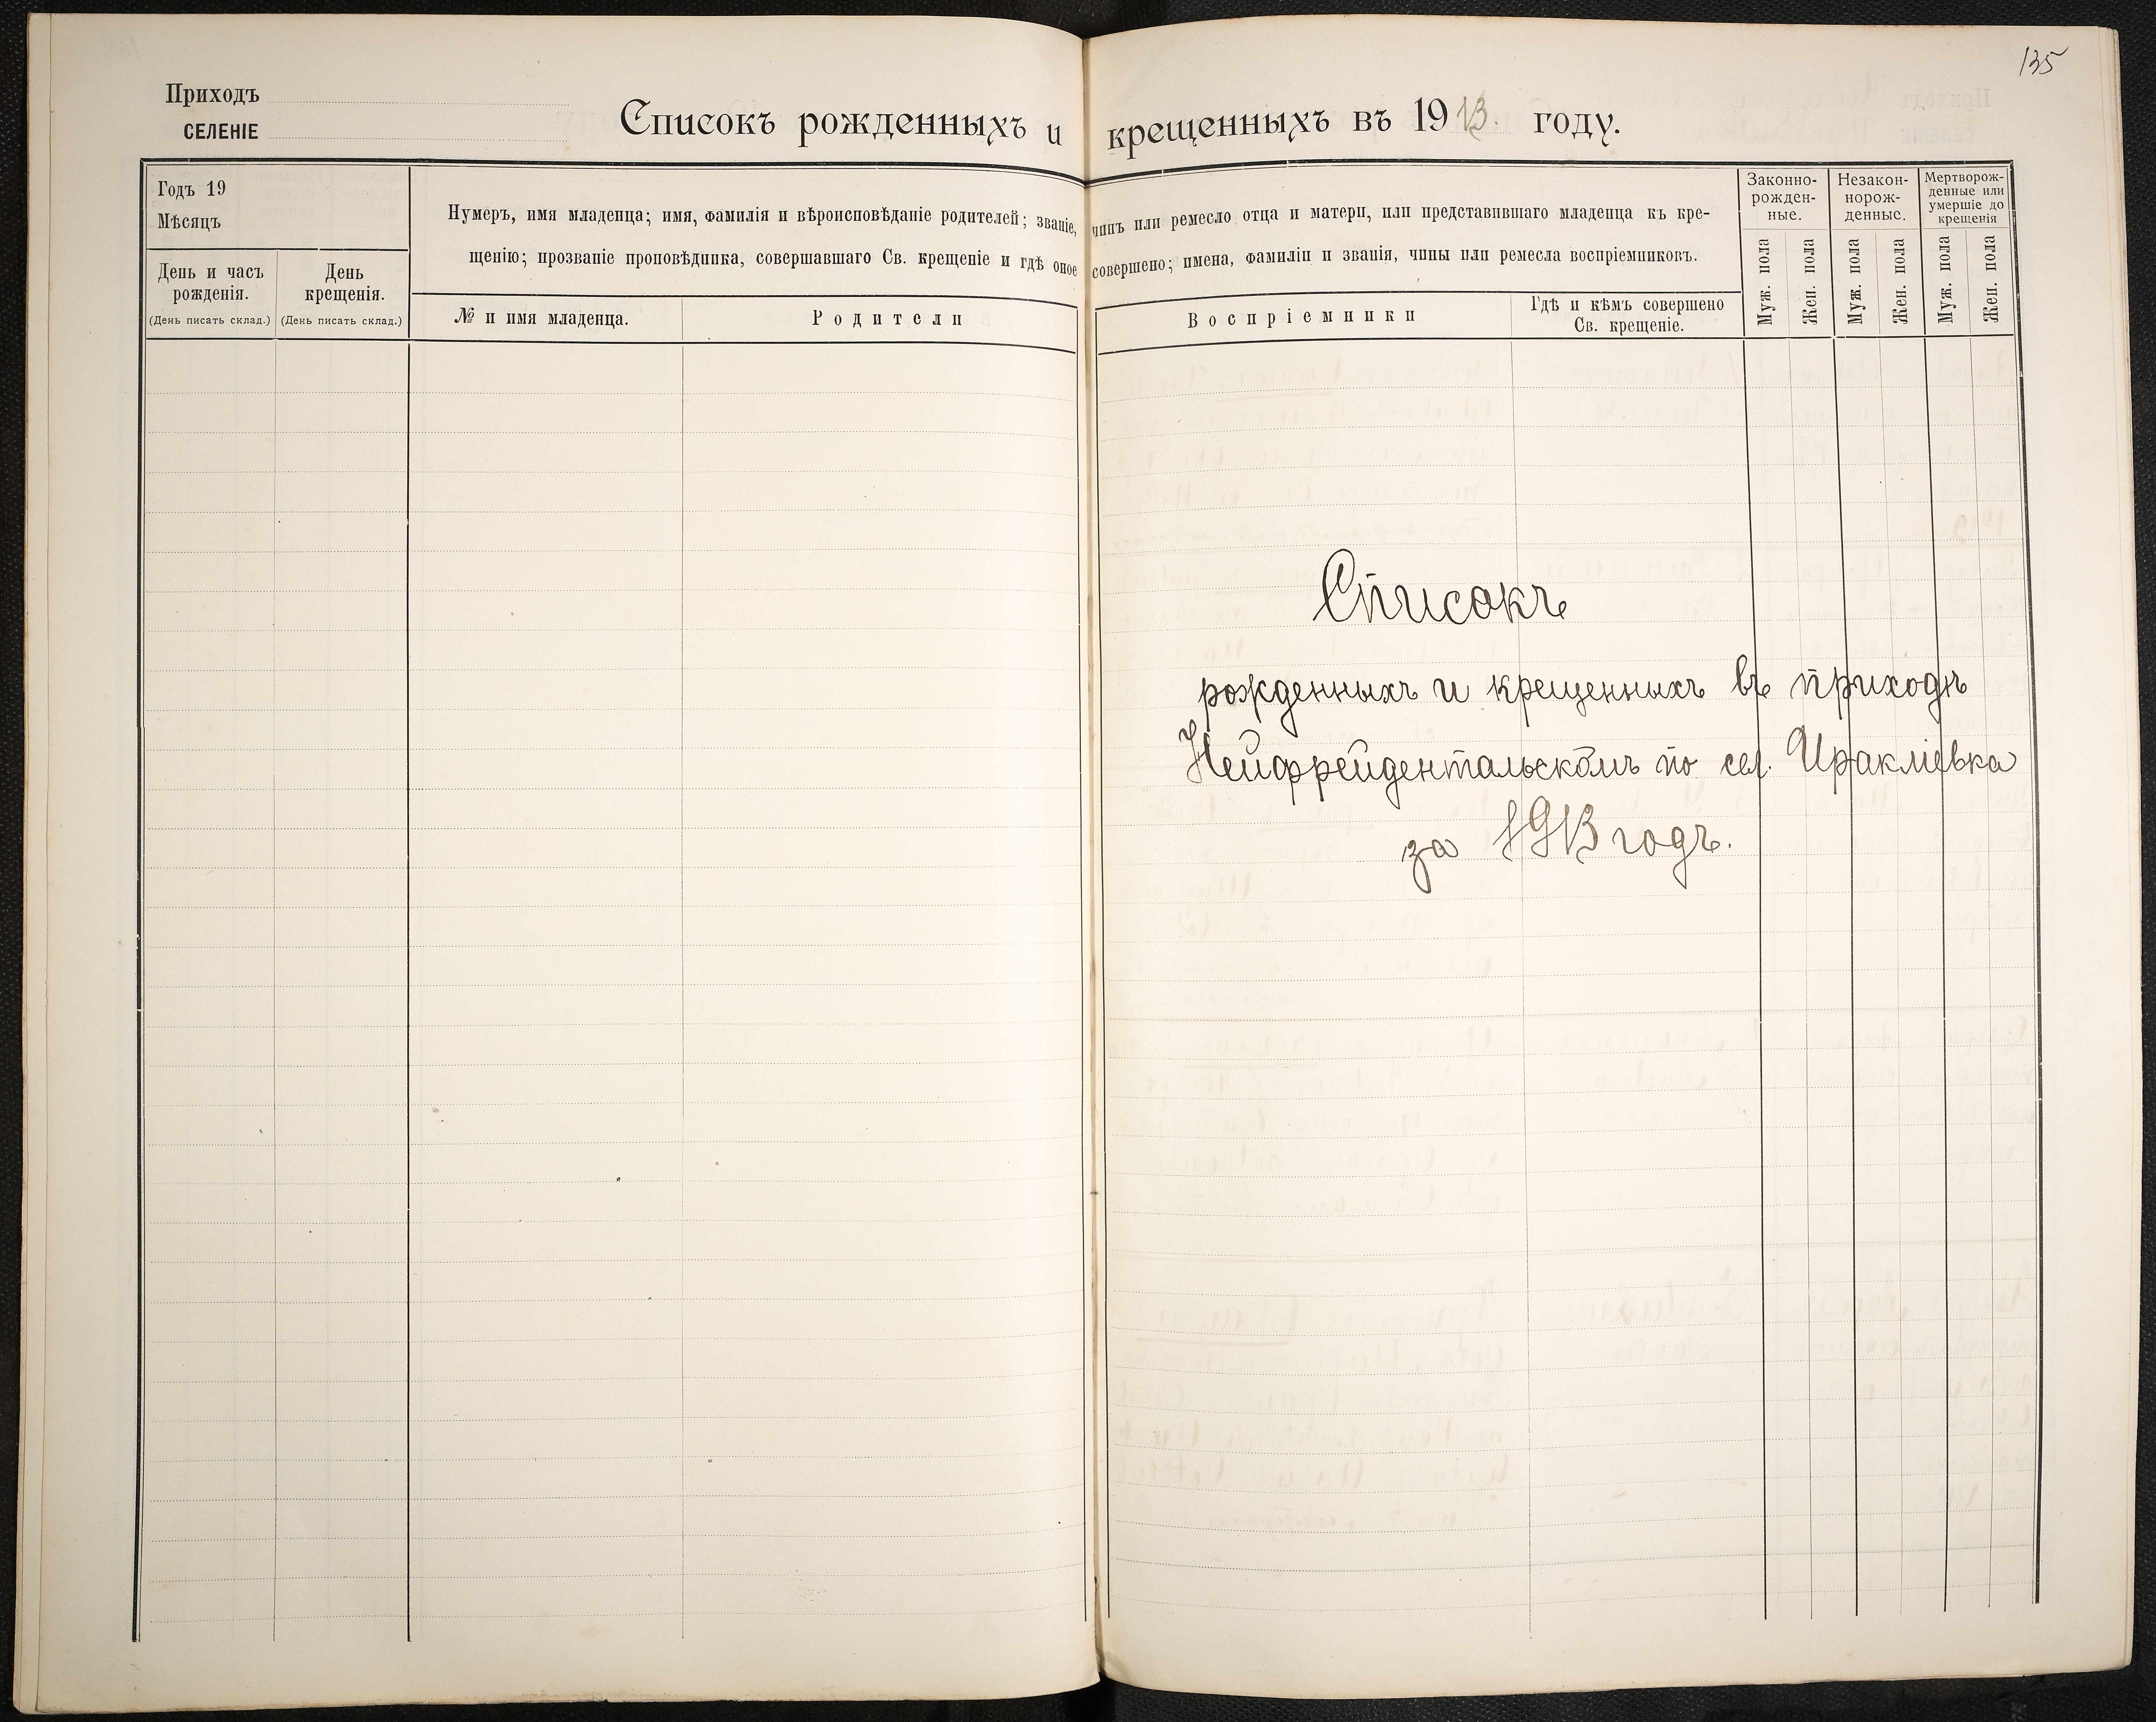 135
Приходъ
СЕЛЕНІЕ
Списокъ рожденныхъ и крещенныхъ въ 1913. году.
Годъ 19
Мѣсяцъ
День и часъ рожденія.
(День писать склад.)
День крещенія.
(День писать склад.)
Нумеръ, имя младенца; имя, фамилія и вѣроисповѣданіе родителей; званіе, чинъ или ремесло отца и матери, или представившаго младенца къ кре-
щенію; прозваніе проповѣдника, совершавшаго Св. крещеніе и гдѣ оное совершено; имена, фамиліи и званія, чины или ремесла воспріемниковъ.
№ и имя младенца.
Родители
Воспріемники
Гдѣ и кѣмъ совершено
Св. крещеніе.
Законно-
рожден-
ные.
Незакон-
норож-
денные.
Мертворож-
денные или
умершіе до
крещенія
Муж. пола
Жен. пола
Муж. пола
Жен. пола
Муж. пола
Жен. пола
Списокъ
рожденныхъ и крещенныхъ въ приходѣ
Нейфрейдентальскомъ по сел. Ираклiевка
за 1913 годъ.